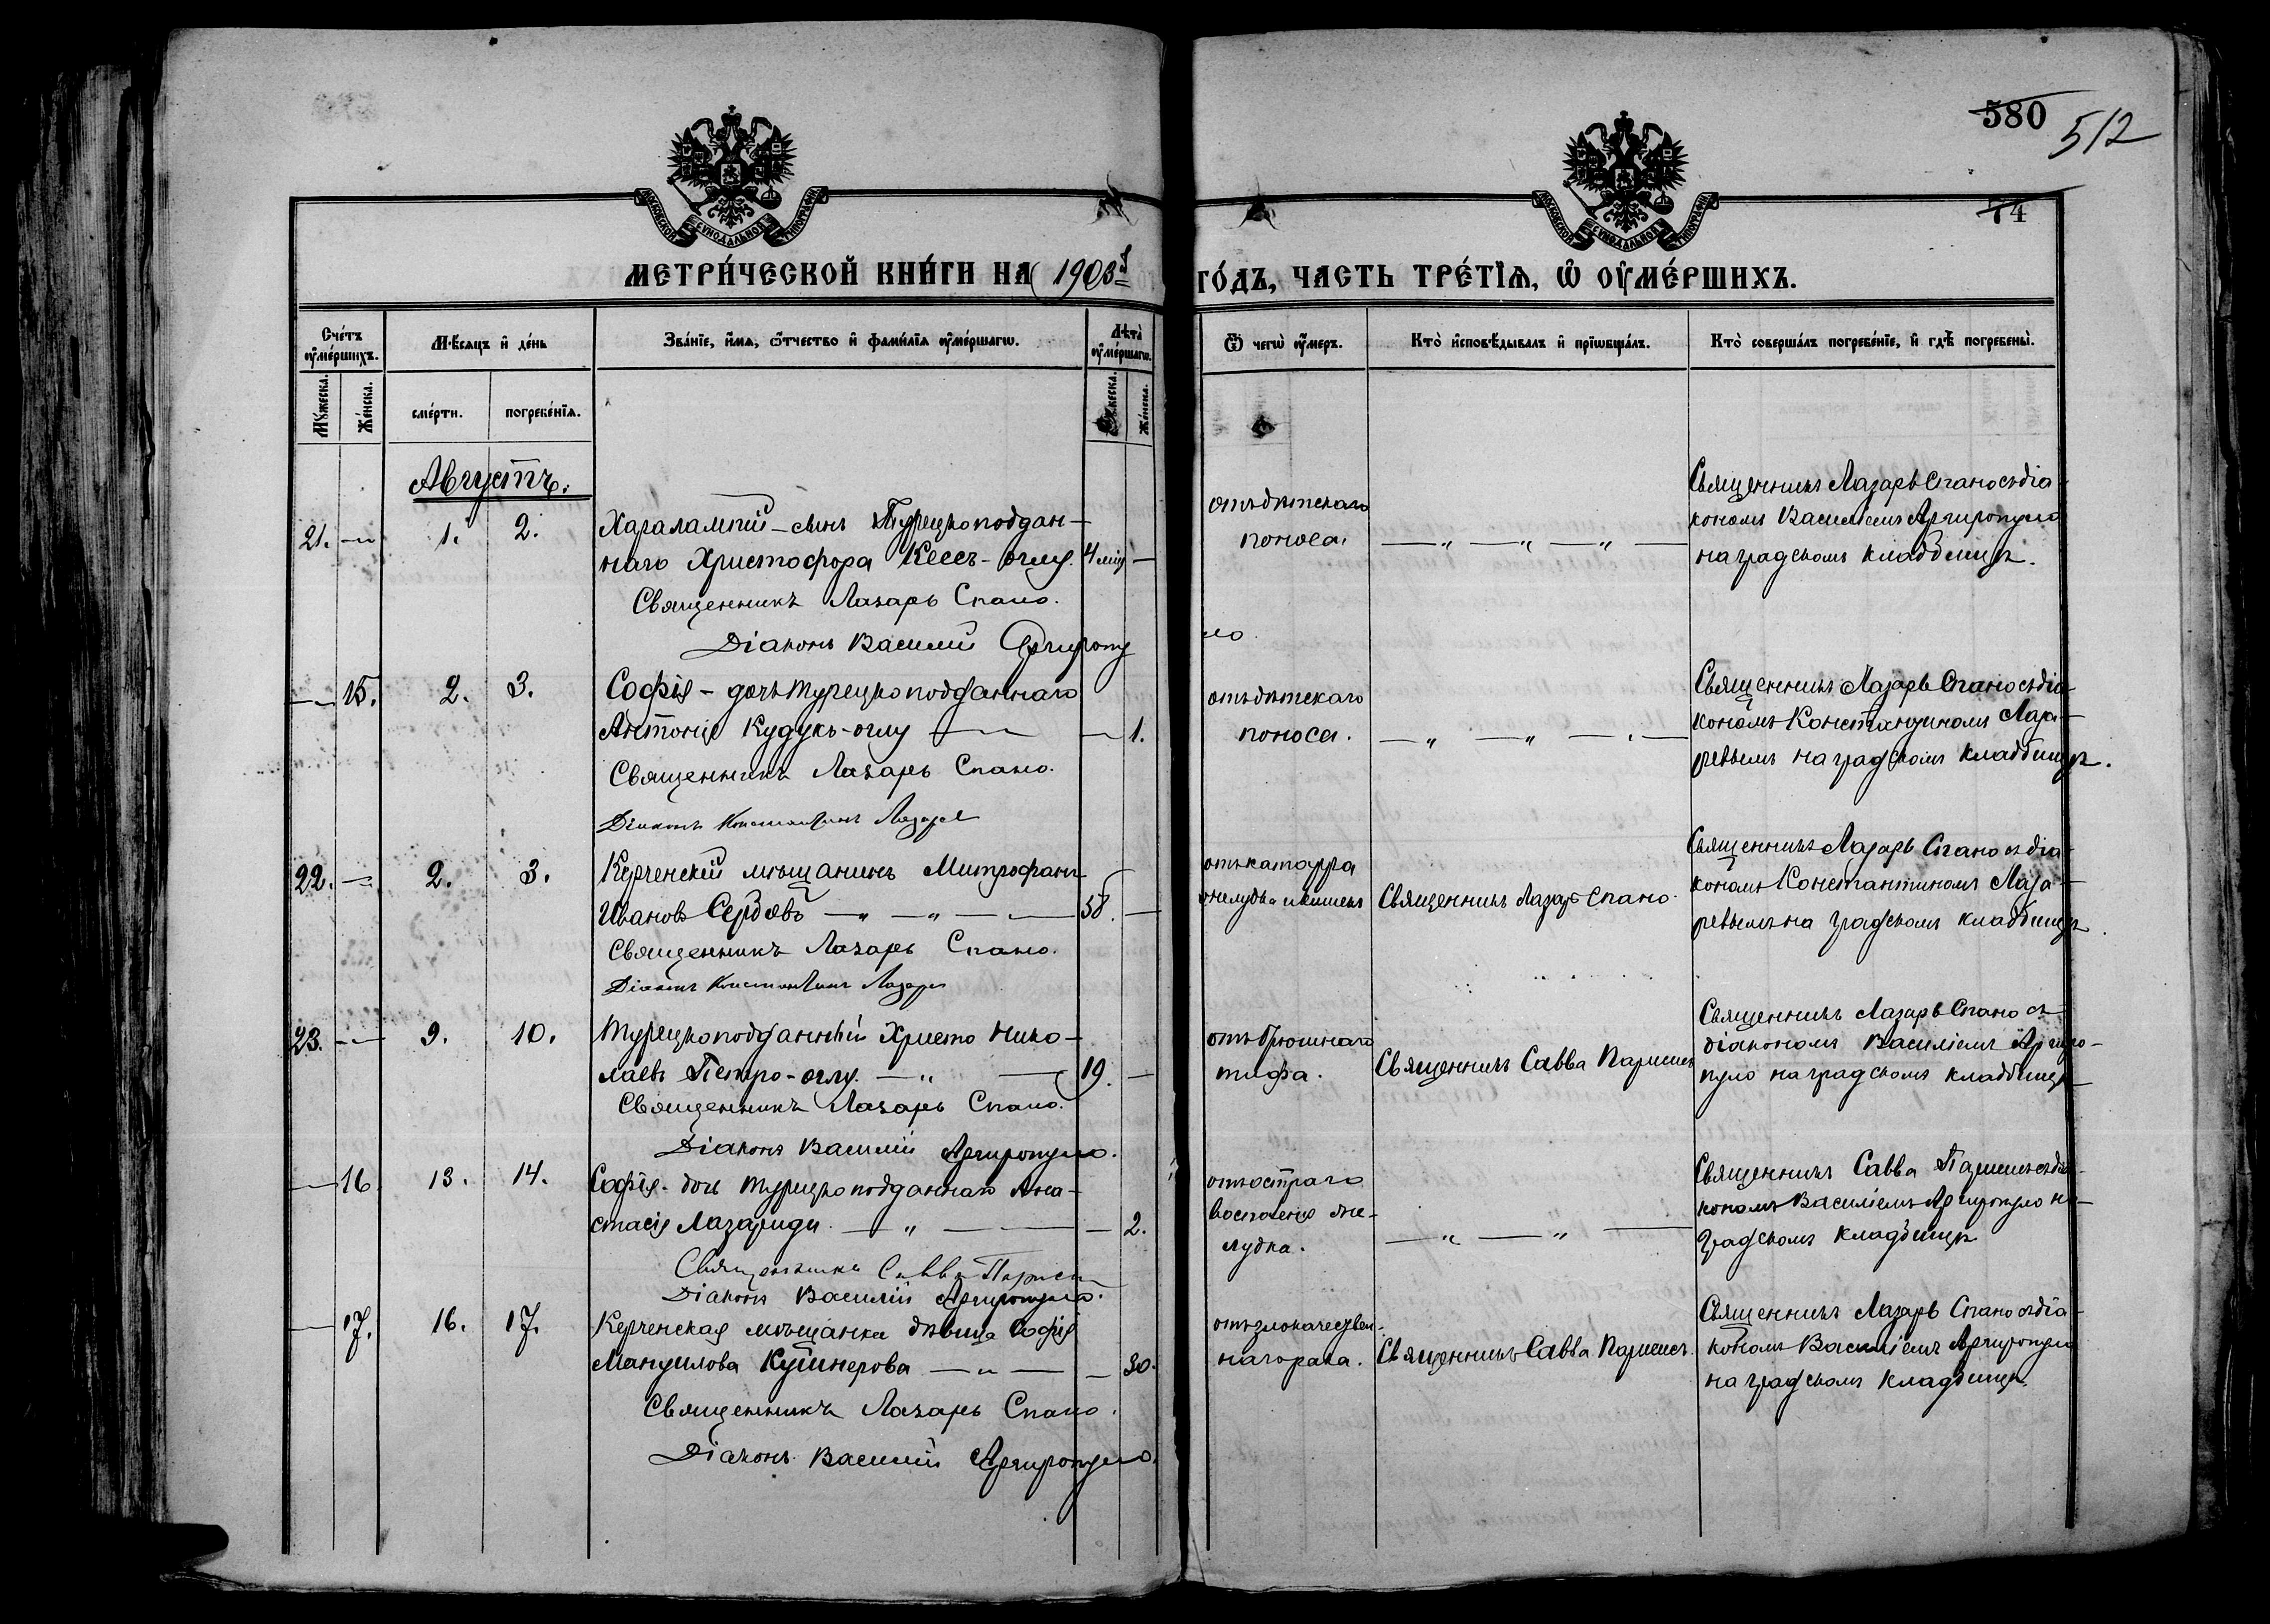 580
512
74
МОСКОВСКОЙ СѴНОДАЛЬНОЙ ТИПОГРАФІИ
МОСКОВСКОЙ СѴНОДАЛЬНОЙ ТИПОГРАФІИ
МЕТРИ́ЧЕСКОЙ КНИ́ГИ НА 1903й
ГО́ДЪ, ЧАСТЬ ТРЕ́ТІѦ, Ѡ ОУМЕ́РШИХЪ.
Сче́тъ оуме́ршихъ.
Мꙋжеска.
Же́нска.
Мѣсяцъ и де́нь
сме́рти.
погребе́нїѧ.
Зва́нїе, и́мѧ, ѻ҆́тчество и фами́лїѧ оуме́ршагѡ.
Лѣта̀ оуме́ршагѡ.
Мꙋжеска.
Же́нска.
Ѿ чегѡ̀ оу́меръ.
Кто̀ и҆сповѣ́дывалъ и прїѡбща́лъ.
Кто̀ соверша́лъ погребе́нїе, и гдѣ̀ погребены̀.
Августъ.
21. — 1. 2.
Харалампій – сынъ Турецкоподдан-
наго Христофора Кессъ-оглу. 4 мѣс —
Священникъ Лазарь Спано.
Діаконъ Василій Аргиропу
ло
отъ дѣтскаго
поноса.
Священникъ Лазарь Спано съ діа-
кономъ Василіемъ Аргиропуло
на градскомъ кладбищѣ.
— 15. 2. 3.
Софія – дочь турецкоподданнаго
Антонія Кудукъ-оглу — — 1.
Священникъ Лазарь Спано.
Діаконъ Константинъ Лазарев
отъ дѣтскаго
поноса.
Священникъ Лазарь Спано съ діа-
кономъ Константиномъ Лаза-
ревымъ на градскомъ кладбищѣ.
22. — 2. 3.
Керченскій мѣщанинъ Митрофанъ
Ивановъ Сербовъ — " — " — 58. —
Священникъ Лазарь Спано.
Діаконъ Константинъ Лазарев
отъ катарра
желудка и кишекъ
Священникъ Лазарь Спано.
Священникъ Лазарь Спано съ діа-
кономъ Константиномъ Лаза-
ревымъ на градскомъ кладбищѣ.
23. — 9. 10.
Турецкоподданный Христо Нико-
лаевъ Петро-оглу. — " — 19. —
Священникъ Лазарь Спано.
Діаконъ Василій Аргиропуло.
отъ брюшнаго
тифа.
Священникъ Савва Парисисъ
Священникъ Лазарь Спано съ
діакономъ Василіемъ Аргиро-
пуло на градскомъ кладбищѣ
— 16 13. 14.
Софія - дочь турецкоподданнаго Ана-
стасія Лазариди. — " — — 2.
Священникъ Савва Париси
Діаконъ Василій Аргиропуло.
отъ остраго
воспаленія же-
лудка.
Священникъ Савва Парисисъ съ діа-
кономъ Василіемъ Аргиропуло на
градскомъ кладбищѣ
— 17. 16. 17.
Керченская мѣщанка дѣвица Софія
Мануилова Кушнерова — " — — 30.
Священникъ Лазарь Спано.
Діаконъ Василій Аргиропуло.
отъ злокачествен-
наго рака.
Священникъ Савва Парисисъ.
Священникъ Лазарь Спано съ діа-
кономъ Василіемъ Аргиропуло
на градскомъ кладбищѣ.